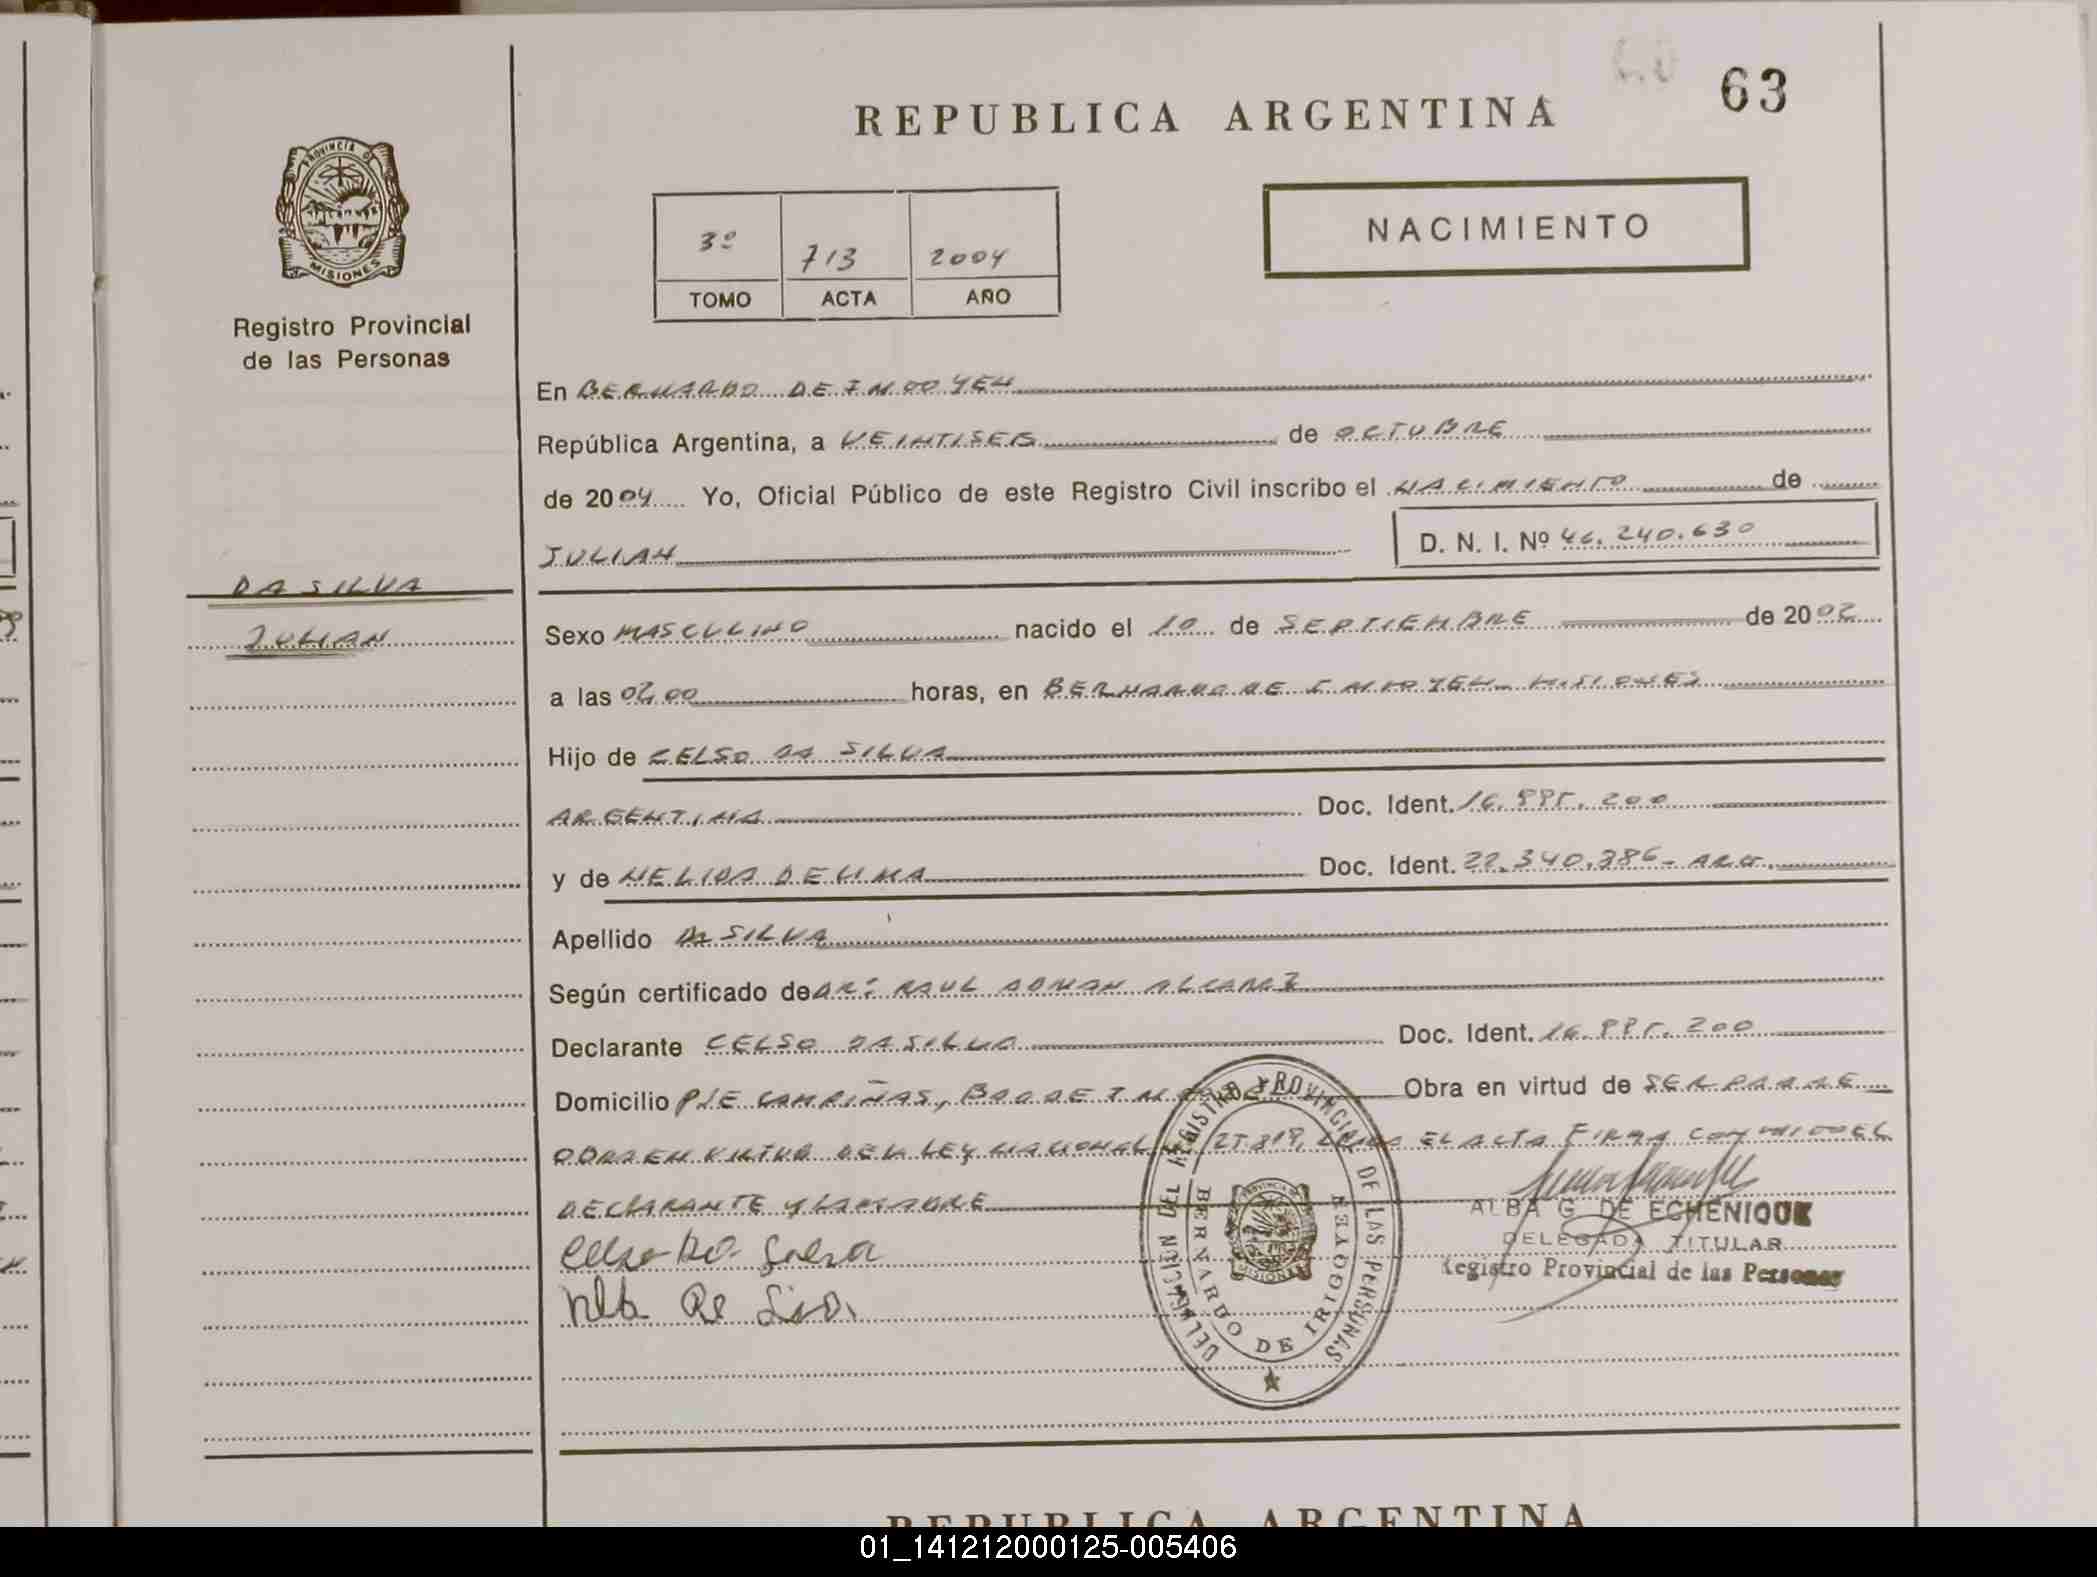 63
REPUBLICA ARGENTINA
PROVINCIA DE
MISIONES
Registro Provincial
de las Personas
NACIMIENTO
3º 713 2004
TOMO ACTA AÑO
En BERNARDO DE IRIGOYEN
República Argentina, a VEINTISEIS de OCTUBRE
de 2004 Yo, Oficial Público de este Registro Civil inscribo el NACIMIENTO de
JULIAN D. N. I. Nº 46.240.630
DA SILVA
JULIAN
Sexo MASCULINO nacido el 10 de SEPTIEMBRE de 2002
a las 02,00 horas, en BERNARDO DE IRIGOYEN - MISIONES
Hijo de CELSO DA SILVA
ARGENTINA Doc. Ident. 200
y de NELIDA DE LIMA Doc. Ident. 22.340.386 - ARG.
Apellido DA SILVA
Según certificado de DR: RAUL ALCARAZ
Declarante CELSO DA SILVA Doc. Ident. 200
Domicilio PJE CAMPIÑAS, BDO DE Obra en virtud de SER PADRE
EN VIRTUD DE LA LEY NACIONAL 25.819, EL ACTA FIRMA CONMIGO EL
DECLARANTE Y LA MADRE
Celso Da Silva
De
ALBA G. DE ECHENIQUE
DELEGADA TITULAR
Registro Provincial de las Personas
DELEGACION DEL REGISTRO PROVINCIAL DE LAS PERSONAS
BERNARDO DE IRIGOYEN
PROVINCIA DE
MISIONES
REPUBLICA ARGENTINA
01_141212000125-005406